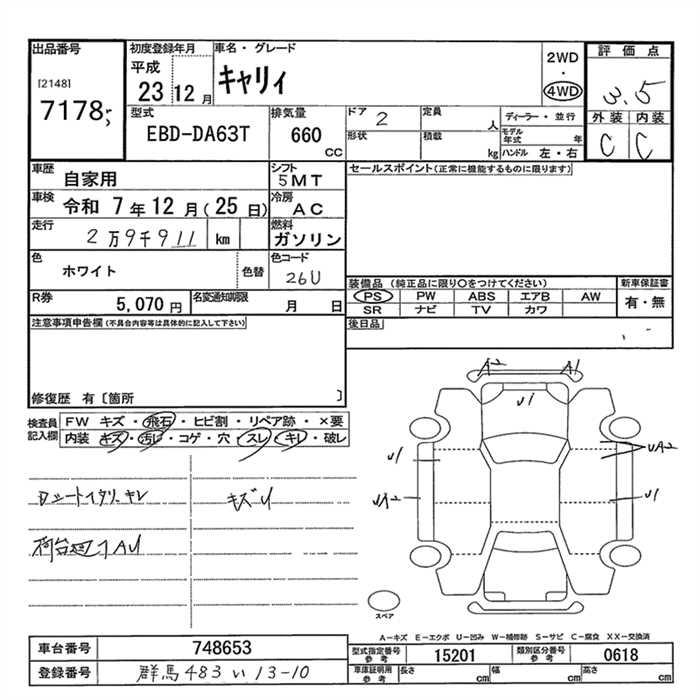 出品番号
[2148]
7178
初度登録年月
平成
23 12 月
車名・グレード
キャリィ
2WD
・
4WD
評価点
3.5
外装 内装
C C
型式
EBD-DA63T
排気量
660
CC
ドア 2
形状
定員
人
積載
kg
ディーラー・並行
モデル年式 年
ハンドル 左・右
車歴
自家用
シフト
5MT
セールスポイント(正常に機能するものに限ります)
車検
令和 7年 12月(25日)
冷房
AC
走行
2万9千911 km
燃料
ガソリン
色
ホワイト
色替
色コード
26U
装備品 (純正品に限り○をつけてください)
新車保証書
PS PW ABS エアB AW
有・無
SR ナビ TV カワ
R券
5,070 円
名変通知期限
月 日
後日品
注意事項申告欄(不具合内容等は具体的に記入して下さい)
修復歴 有〔箇所 〕
検査員記入欄
FW キズ・飛石・ヒビ割・リペア跡・×要
内装 キズ・汚レ・コゲ・穴・スレ・キレ・破レ
キズU
A2 A1
U1
U1
UA2
UA2
U1
スペア
A-キズ E-エクボ U-凹み W-補修跡 S-サビ C-腐食 XX-交換済
車台番号
748653
型式指定番号
参考
15201
類別区分番号
参考
0618
登録番号
群馬 483 い 13-10
車庫証明用
参考
長さ cm
幅 cm
高さ cm